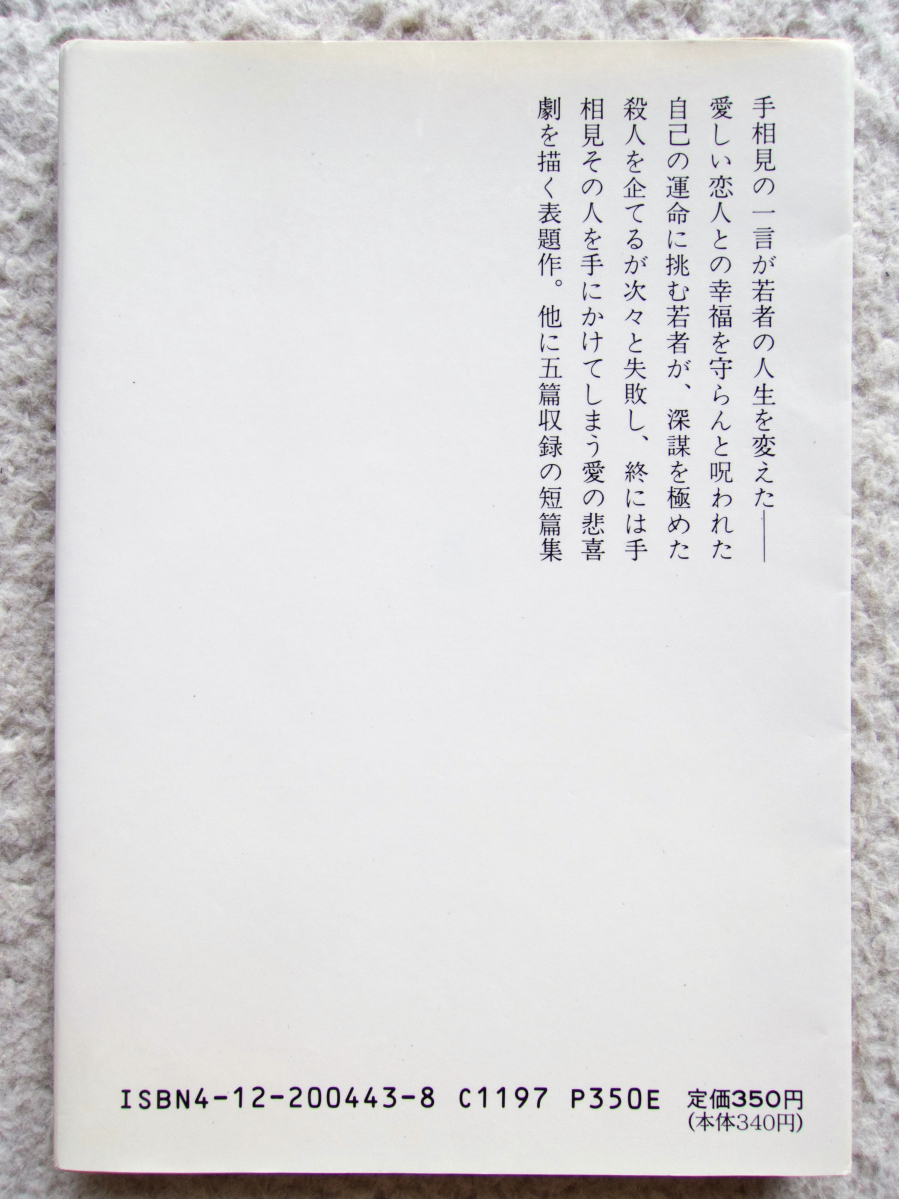 手相見の一言が若者の人生を変えた――
愛しい恋人との幸福を守らんと呪われた
自己の運命に挑む若者が、深謀を極めた
殺人を企てるが次々と失敗し、終には手
相見その人を手にかけてしまう愛の悲喜
劇を描く表題作。他に五篇収録の短篇集
ISBN4-12-200443-8 C1197 P350E 定価350円
(本体340円)